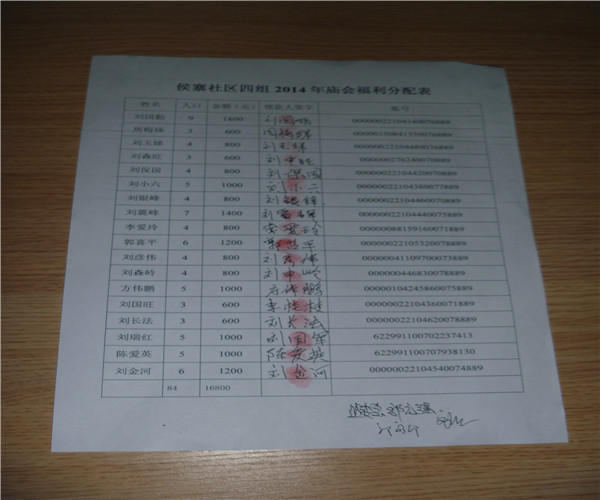 侯寨社区四组 2014 年庙会福利分配表
姓名 人口 金额（元） 领款人签字 账号
刘国勤 9 1800 00000022104340070889
周梅娣 3 600 周梅娣
刘玉娣 4 800 刘玉娣 00000022104480076889
刘森旺 3 600 00000002762400070889
刘保国 4 800 刘保国 00000022104420070889
刘小六 5 1000 刘小六 00000022104580077889
刘银峰 4 800 刘银锋 00000022104460070889
刘震峰 7 1400 00000022104440075889
李爱玲 4 800 李爱玲 00000008815916007１889
郭喜平 6 1200 00000022105320078889
刘彦伟 4 800 刘彦伟 00000041109700073889
刘森岭 4 800 刘申岭 00000004468300788​89
方伟鹏 5 1000 方伟鹏 00000010424586007588​9
刘国旺 3 600 李桂枝 00000022104360071889
刘长法 3 600 刘长法 00000022104620078889
刘瑞红 5 1000 刘国军 622991100702237413
陈爱英 5 1000 陈爱英 622991100707938130
刘金河 6 1200 刘金河 00000022104540074889
84 16800